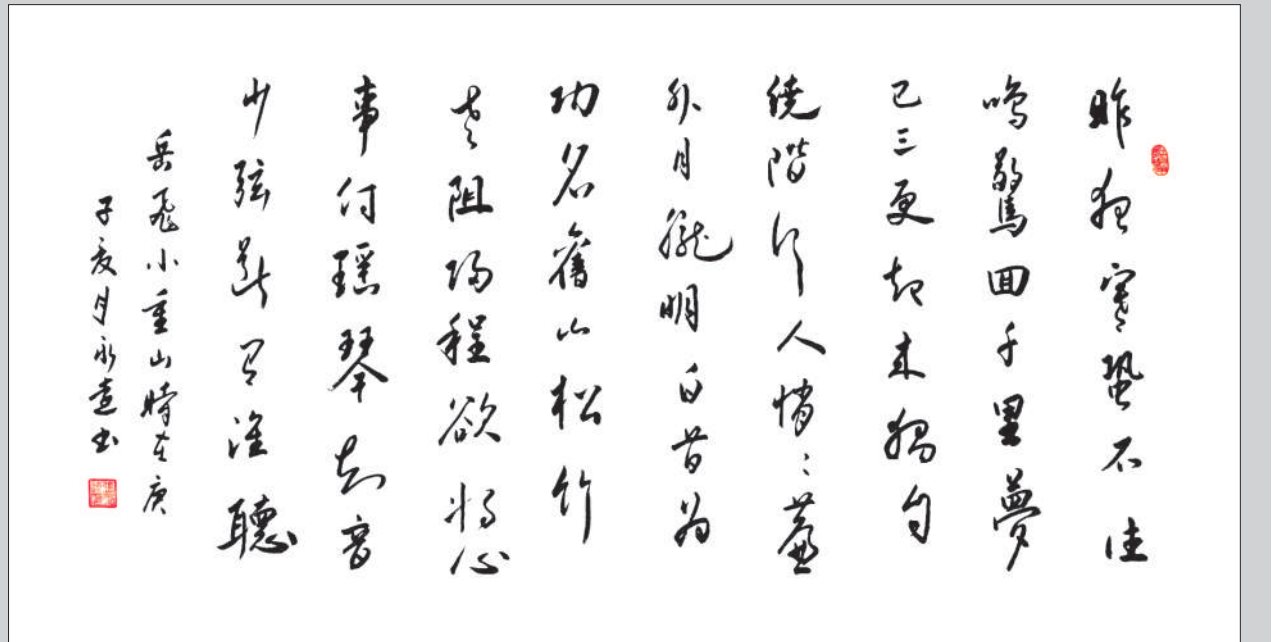 昨夜寒蛩不住
鳴驚囬千里夢
已三更起来獨自
繞階行人悄〻簾
外月朧明白首为
功名舊山松竹
老阻歸程欲将心
事付瑶琴知音
少弦斷有誰聽
岳飛小重山時在庚
子夏月永书